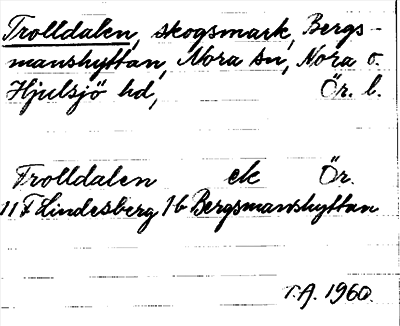 Trolldalen, skogsmark, Bergs-
manshyttan, Nora sn, Nora o.
Hjulsjö hd, Ör. l.
Trolldalen ek Ör.
11 F Lindesberg 1b Bergsmanshyttan
T.A. 1960